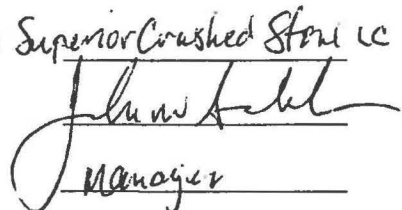 Superior Crushed Stone LC
Manager